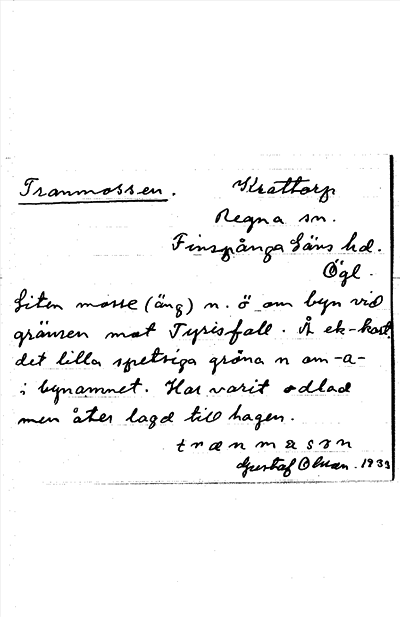 Tranmossen. Krattorp
Regna sn.
Finspånga läns hd.
Ögl.
Liten mosse (äng) n. ö om byn vid
gränsen mot Tyrisfall. Å ek-kart.
det lilla spetsiga gröna n om -a-
i bynamnet. Har varit odlad
men åter lagd till hagen.
trænmasən
Gustaf 1933